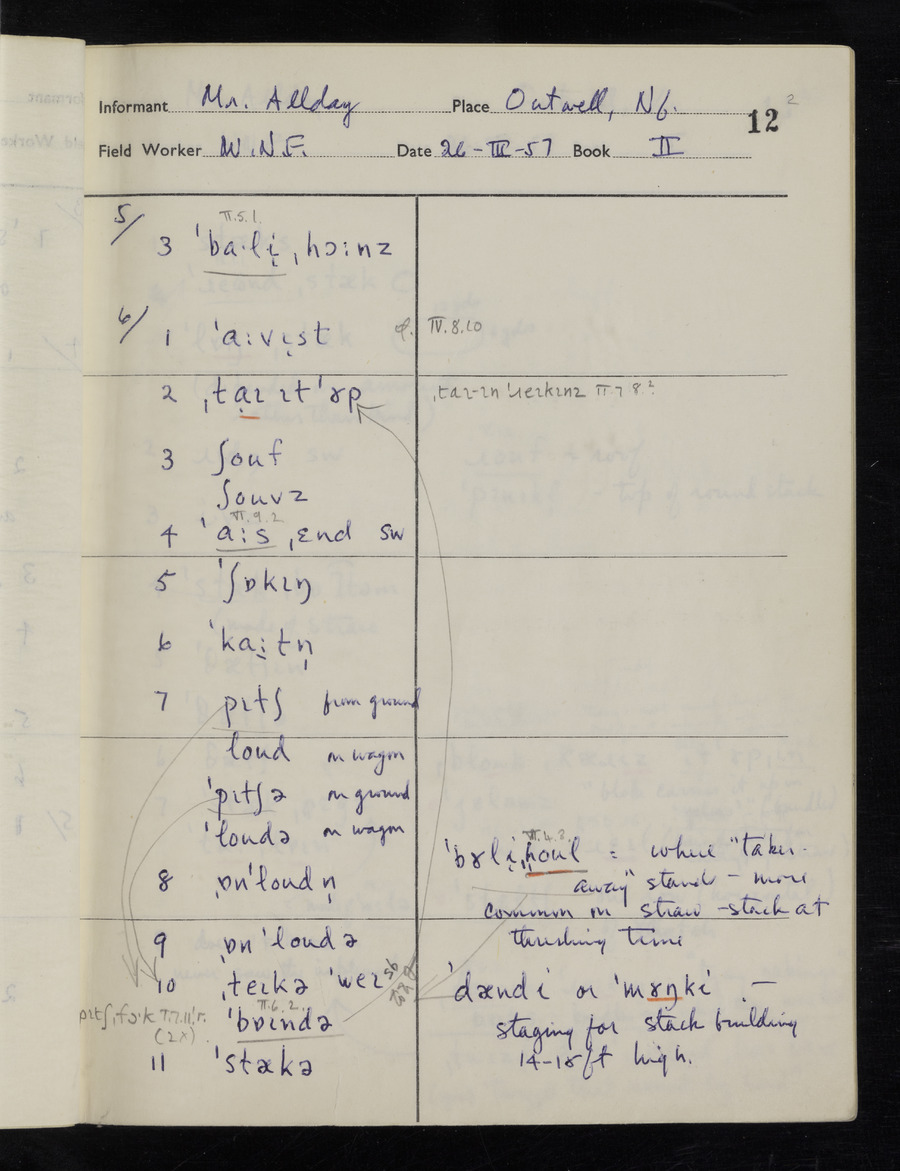 Informant Mr. Allday Place Outwell, Nf. 12 2
Field Worker W.N.F. Date 26-III-57 Book II
5/ II.5.1.
3 ˈbaˑlɩ̣ ˌhɔːnz
6/ 1 ˈaːvɩ̣st cf. IV.8.10
2 ˌtaɪ ɪt ˈɤp ˌtaɪ-ɪn
3 ʃouf
ʃouvz
VI.9.2
4 ˈaːs ˌɛnd sw
5 ˈʃɒkɪŋ
6 ˈkaːtn̩
7 pɪtʃ from ground
loud on wagon
ˈpɪtʃə on ground
ˈloudə on wagon
8 ˌɒnˈloudn̩
9 ˌɒnˈloudə
10 ˌteɪkə ˈweɪ sb
pɪtʃˌfɔˑk II.7.11 r. (2x)
II.6.2.
ˈbɒɪndə
11 ˈstækə
ˈbɤlɩ̣ˌhoul : where "taker-
away" stands - more
common on straw-stack at
threshing time
ˈdændi or ˈmɤŋki :-
staging for stack building
14-15ft high.